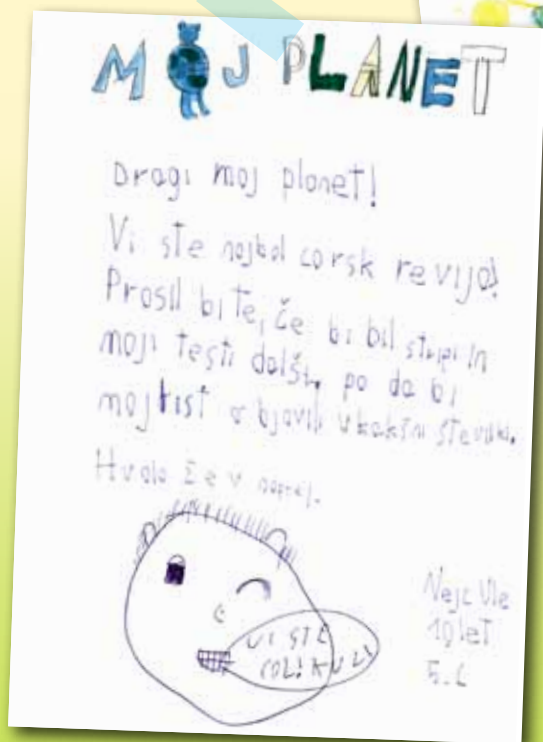 MOJ PLANET
Dragi moj planet!
Vi ste najbol carsk revija!
Prosil bi te, če bi bil stripi in
moji testi dalši, pa da bi
moj list objavili v kakšni številki.
Hvala že v naprej.
VI STE
COOL! KUL!
Nejc Ule
10 let
5. c